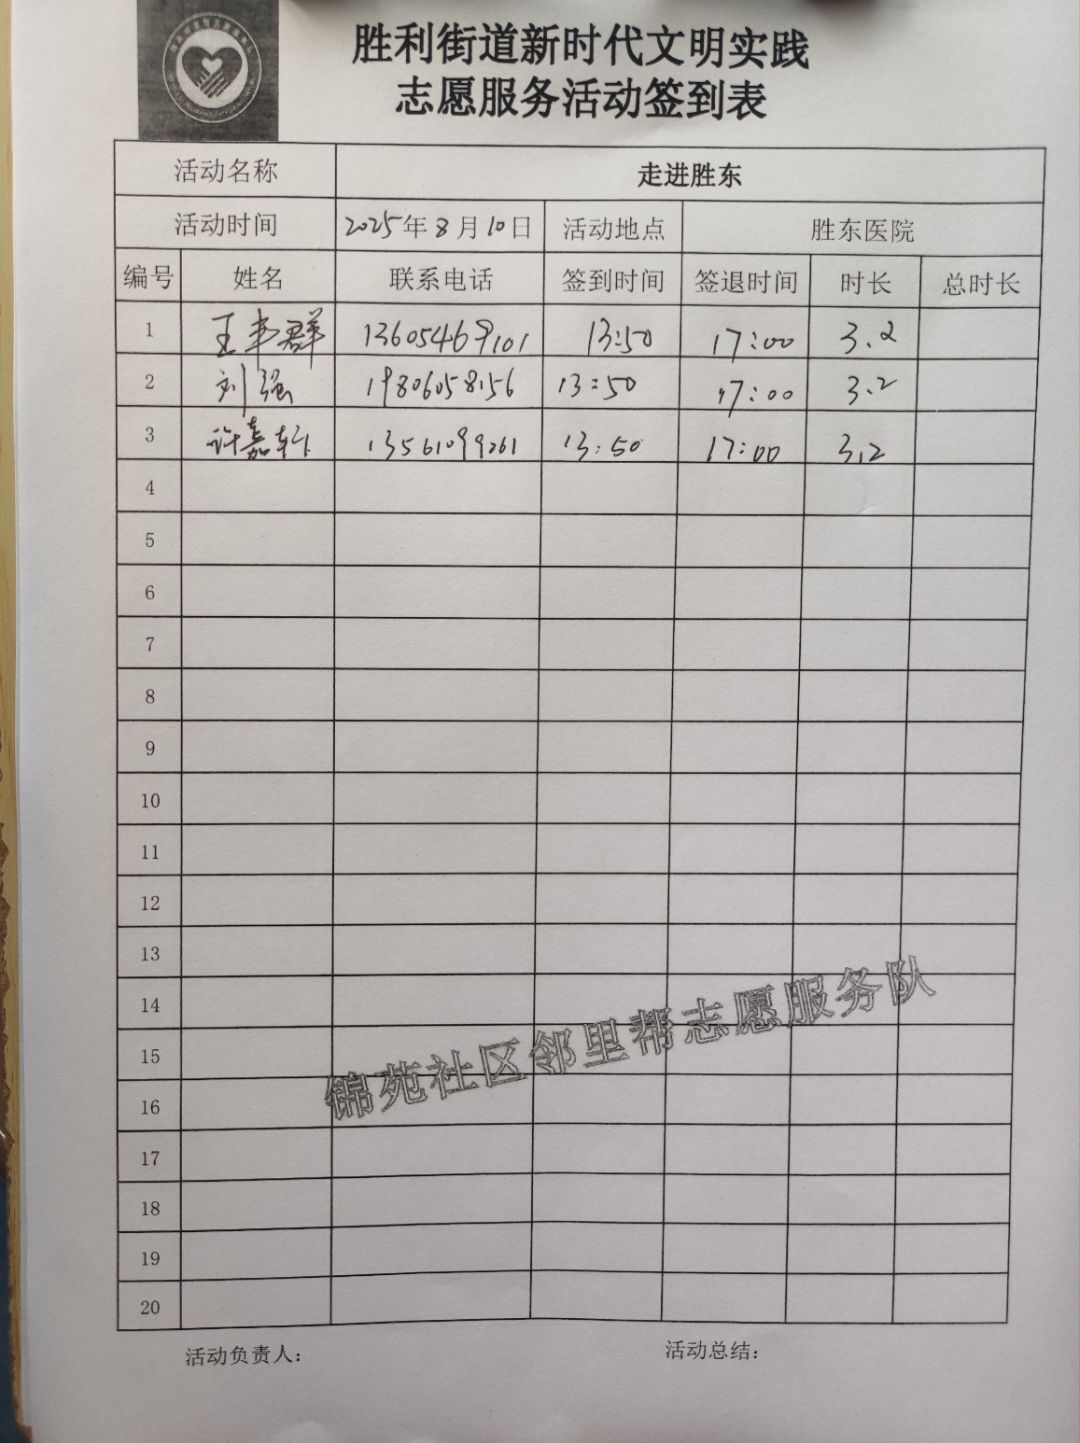 胜利街道新时代文明实践
志愿服务活动签到表
活动名称 走进胜东
活动时间 2025年8月10日 活动地点 胜东医院
编号 姓名 联系电话 签到时间 签退时间 时长 总时长
1 王 群 13605469101 13:50 17:00 3.2
2 刘强 19806058156 13:50 17:00 3.2
3 许嘉轩 13561099261 13:50 17:00 3.2
4
5
6
7
8
9
10
11
12
13
14
15
16
17
18
19
20
锦苑社区邻里帮志愿服务队
活动负责人: 活动总结: